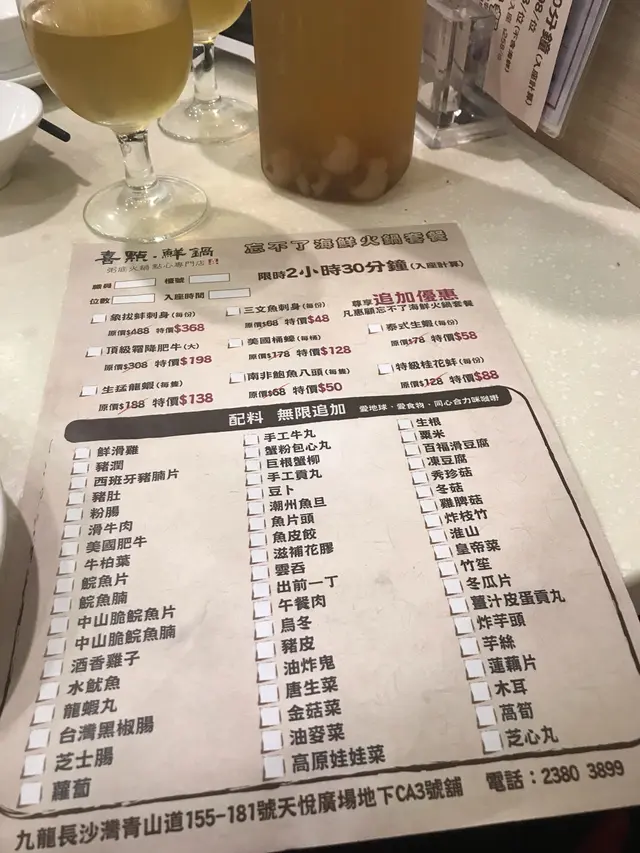 喜點·鮮鍋
粥底火鍋點心專門店
忘不了海鮮火鍋套餐
限時2小時30分鐘(入座計算)
職員 檯號
位數 入座時間
尊享追加優惠
凡惠顧忘不了海鮮火鍋套餐
象拔蚌刺身(每份)
原價$488 特價$368
三文魚刺身(每份)
原價$68 特價$48
泰式生蝦(每份)
原價$78 特價$58
頂級霜降肥牛(大)
原價$308 特價$198
美國桶蠔(每桶)
原價$178 特價$128
特級桂花蚌(每份)
原價$128 特價$88
生猛龍蝦(每隻)
原價$188 特價$138
南非鮑魚八頭(每隻)
原價$68 特價$50
配料 無限追加 愛地球·愛食物·同心合力咪嘥嘢
鮮滑雞
豬潤
西班牙豬腩片
豬肚
粉腸
滑牛肉
美國肥牛
牛柏葉
鯇魚片
鯇魚腩
中山脆鯇魚片
中山脆鯇魚腩
酒香雞子
水魷魚
龍蝦丸
台灣黑椒腸
芝士腸
蘿蔔
手工牛丸
蟹粉包心丸
巨根蟹柳
手工貢丸
豆卜
潮州魚旦
魚片頭
魚皮餃
滋補花膠
雲吞
出前一丁
午餐肉
烏冬
豬皮
油炸鬼
唐生菜
金菇菜
油麥菜
高原娃娃菜
生根
粟米
百福滑豆腐
凍豆腐
秀珍菇
冬菇
雞脾菇
炸枝竹
淮山
皇帝菜
竹笙
冬瓜片
薑汁皮蛋貢丸
炸芋頭
芋絲
蓮藕片
木耳
萵筍
芝心丸
九龍長沙灣青山道155-181號天悅廣場地下CA3號舖 電話：2380 3899